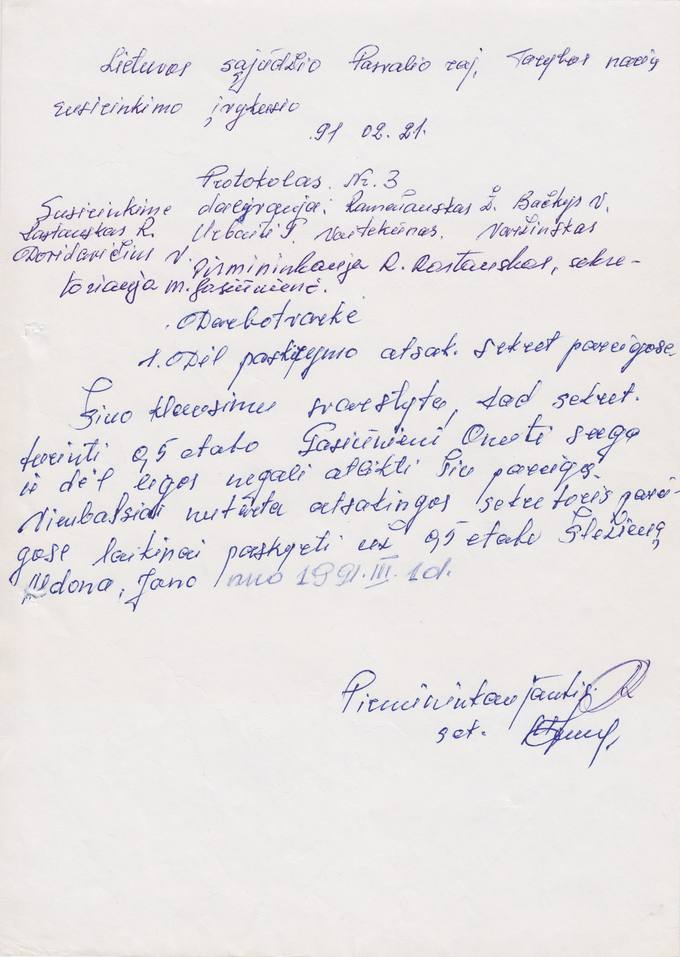 Lietuvos sąjūdžio Pasvalio raj. Tarybos narių
susirinkimo įvykusio
91 02.21.
Protokolas Nr. 3
Susirinkime dalyvauja: Ramašauskas Ž. Bačkys V.
Rastauskas R. Urbaitė P. Vaitekūnas. Varžinskas
Dovidavičius V.
Pirmininkauja R. Rastauskas, sekre-
toriauja M. Gasiūnienė.
Darbotvarkė
1. Dėl paskyrymo atsak. sekret pareigose
Šiuo klausimu svarstyta, kad sekret.
turinti 0,5 etato Gasiūnienė Onutė serga
ir dėl ligos negali atlikti šių pareigų.
Vienbalsiai nutarta atsakingos sekretorės parei-
gose laikinai paskyrti už 0,5 etato
Aldona, Jono nuo 1991.III.1d.
Pirmininkaujantis
sek.